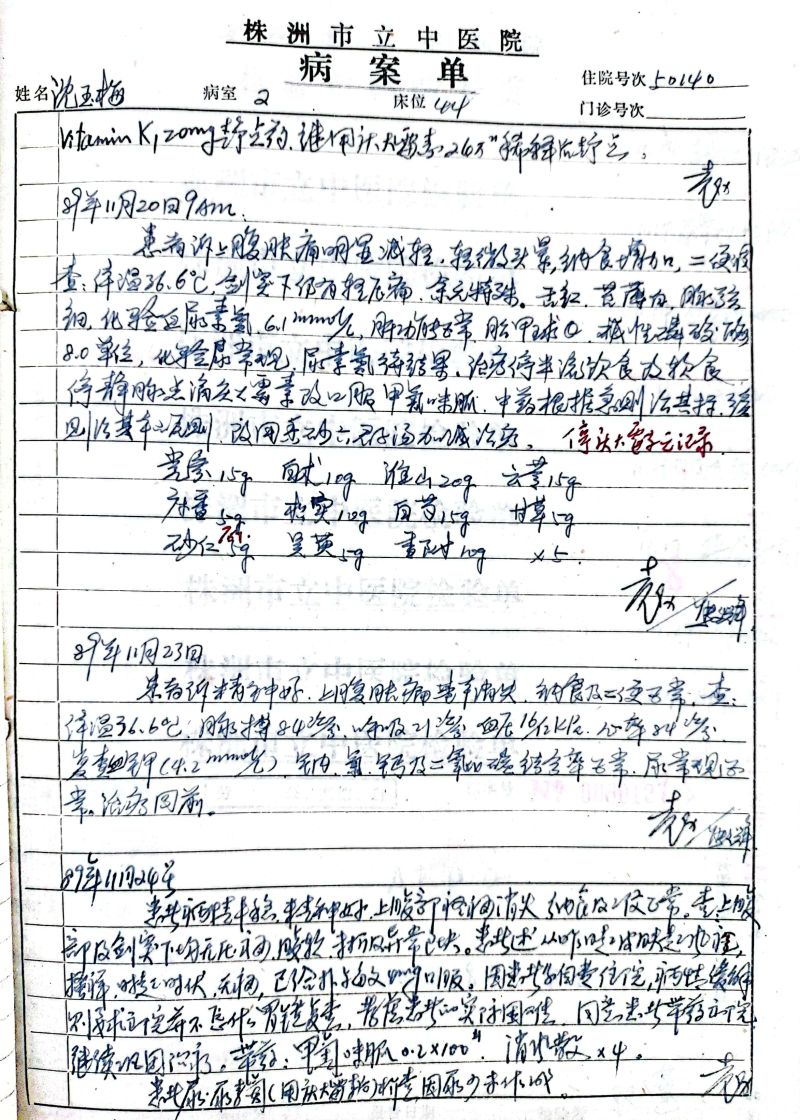 株洲市立中医院
病案单
住院号次 50140
姓名 沈玉梅 病室 2 床位 44 门诊号次
Vitamin K1 20mg静点药.继用庆大霉素24万"稀释后静点。
89年11月20日9Am.
患者诉上腹胀痛明显减轻.轻微头晕,纳食增加,二便调
查:体温36.6℃ 剑突下仍有轻压痛.余无特殊.舌红.苔薄白.脉弦
细.化验血尿素氮6.1mmol/L,肝功能正常,胎甲球⊖.碱性磷酸酶
8.0单位,化验尿常规,尿素氮待结果.治疗停半流饮食改软食
停静脉点滴庆大霉素改口服甲氰咪胍.中药根据急则治其标,缓
则治其本之原则 改用香砂六君汤加减治疗。 停庆大霉素记录
党参15g 白术10g 淮山20g 云苓15g
广香5g 枳实10g 白芍15g 甘草5g
砂仁5g 吴萸5g 香附10g ×5
89年11月23日
患者诉精神好.上腹胀痛基本消失.纳食及二便正常.查:
体温36.6℃ 脉搏84次/分.呼吸21次/分 血压16/12kPa.心率84次/分
复查血钾(4.2mmol/L).钠.氯.钙及二氧化碳结合率正常.尿常规正
常。治疗同前。
89年11月24号
患者病情平稳.精神好,上腹部疼痛消失 纳食及二便正常。查:上腹
部及剑实下均无压痛,腹软,未扪及异常包块。患者述从昨晚起皮肤起风疙,
搔痒,时起时伏,无痛,已给扑尔敏4mg口服。因患者自费住院,病情缓解
则要求出院并不愿作胃镜复查,考虑患者的实际困难 同意患者带药出院
继续巩固治疗。带药:甲氰咪胍0.2×100" 消 散×4。
患者尿尿素氮(用庆大霉素)检查因尿少未作成。